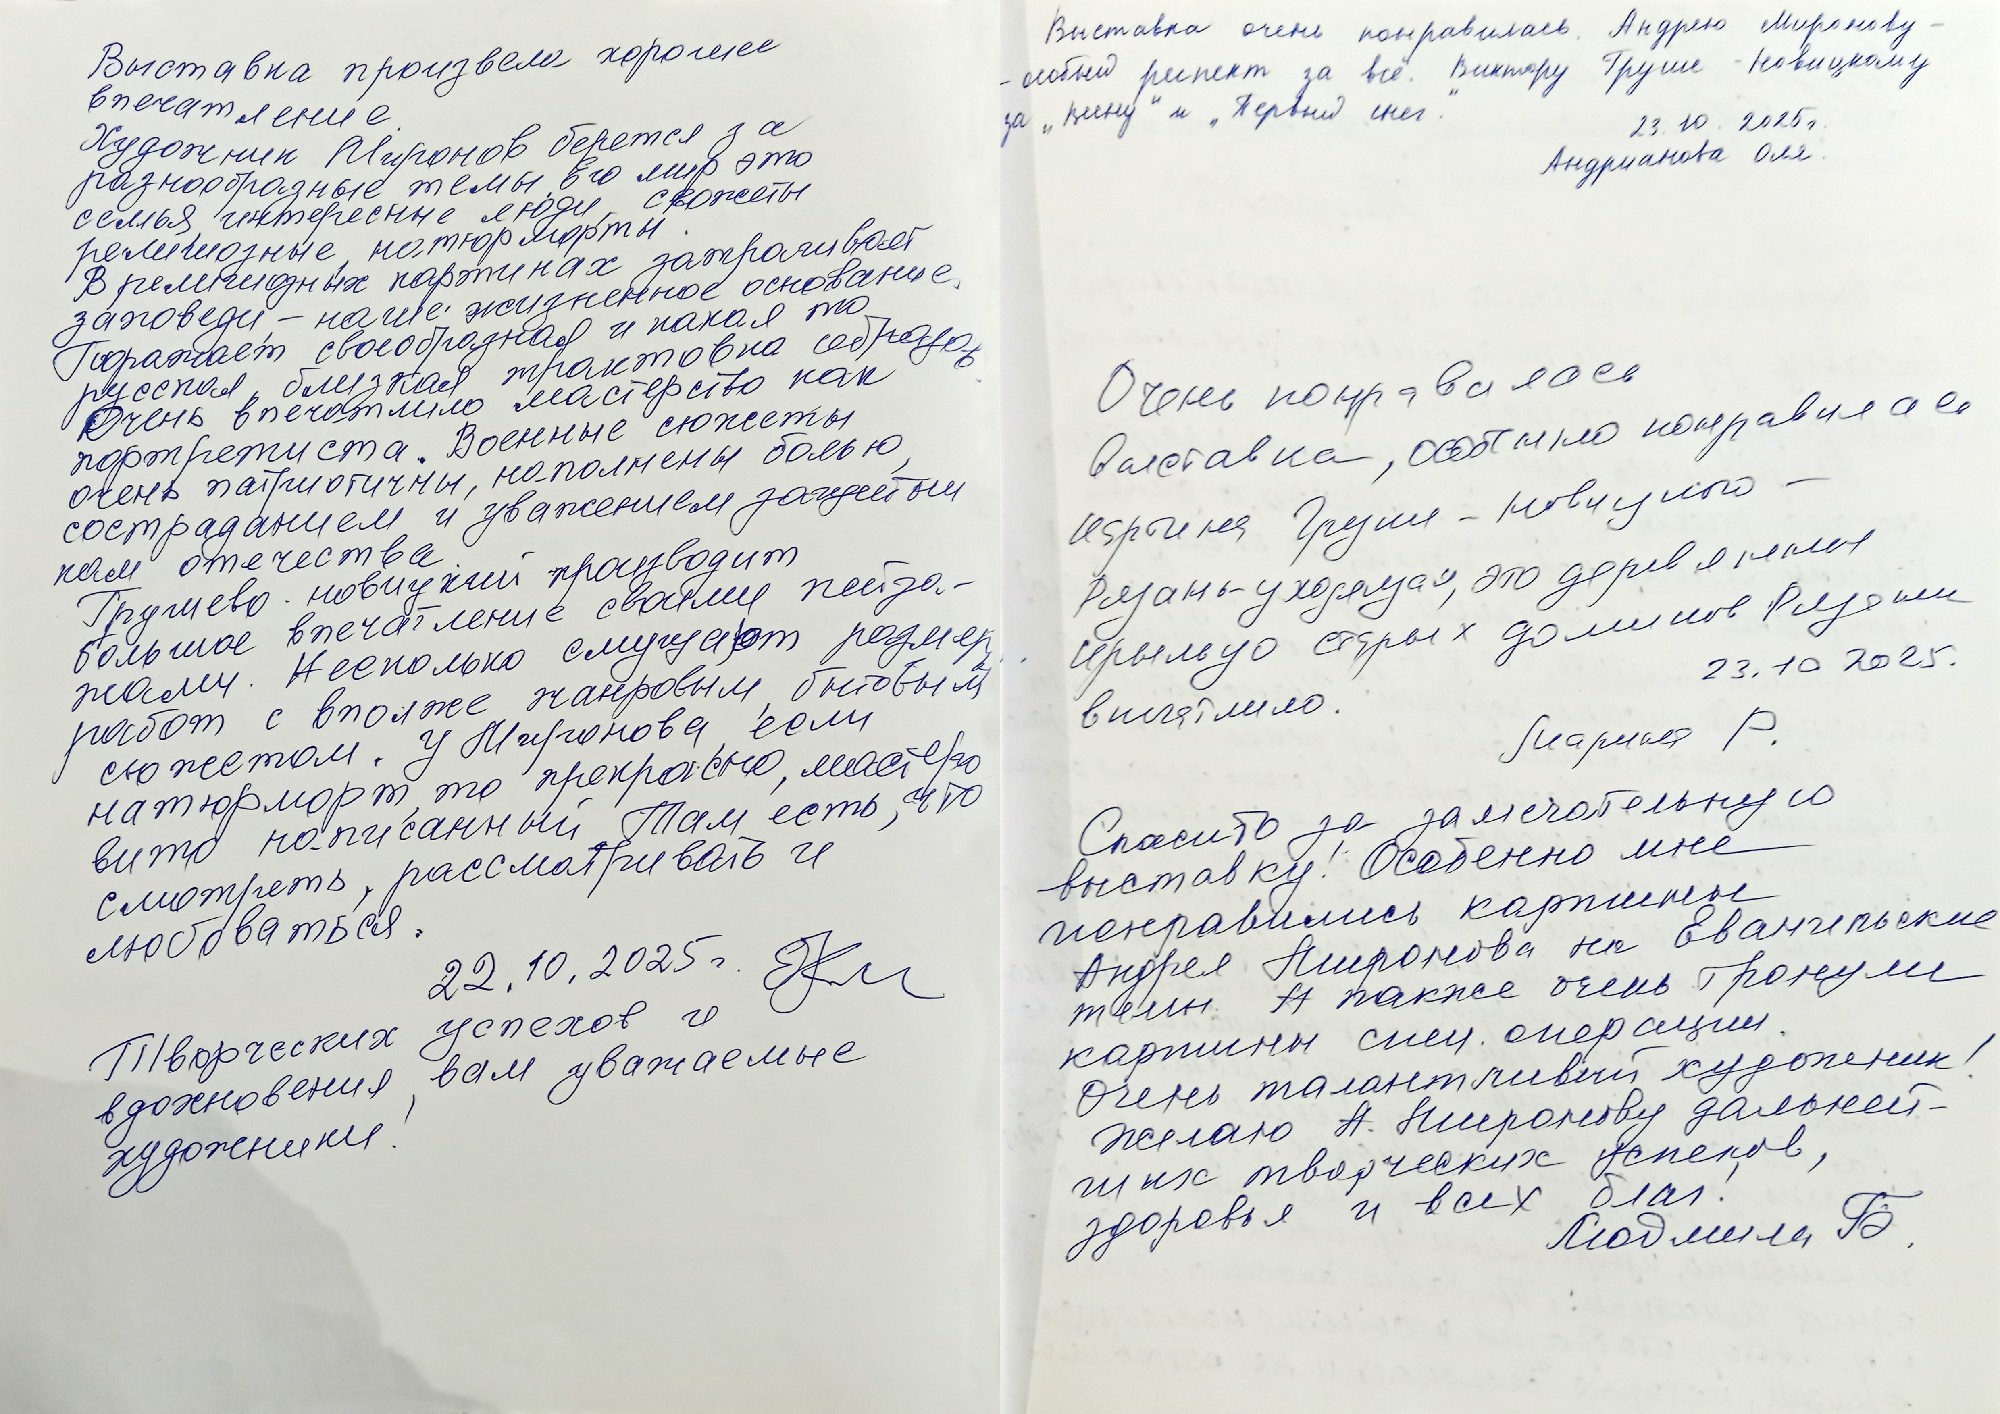 Выставка произвела хорошее
впечатление.
Художник Миронов берется за
разнообразные темы, его мир это
семья, интересные люди, сюжеты
религиозные, натюрморты.
В религиозных картинах затрагивает
заповеди – наше жизненное основание.
Поражает своеобразная и какая то
русская, близкая трактовка образов.
Очень впечатлило мастерство как
портретиста. Военные сюжеты
очень патриотичны, наполнены болью,
состраданием и уважением защитни
кам отечества
Грушево-новицкий производит
большое впечатление своими пейза-
жами. Несколько смущают размер
работ с вполже жанровым, бытовым
сюжетом. У Миронова, если
натюрморт, то прекрасно, мастеро
вито написанный. Там есть, что
смотреть, рассматривать и
любоваться.
22.10.2025г.
Творческих успехов и
вдохновения, вам уважаемые
художники!
Выставка очень понравилась. Андрею Миронову –
– особый респект за всё. Виктору Груше-Новицкому
за „Вину“ и „Первый снег.“
23.10.2025г.
Андрианова Оля.
Очень понравилась
Выставка, особенно понравилась
картина Груши-Новицкого –
Рязань-уходящая, это деревянный
крыльцо старых домиков Рязани
впечатлило.
23.10 2025.
Марина Р.
Спасибо за замечательную
выставку! Особенно мне
понравились картины
Андрея Миронова на Евангельские
темы. А также очень тронули
картины спец. операции.
Очень талантливый художник!
Желаю А. Миронову дальней-
ших творческих успехов,
здоровья и всех благ!
Людмила Б.